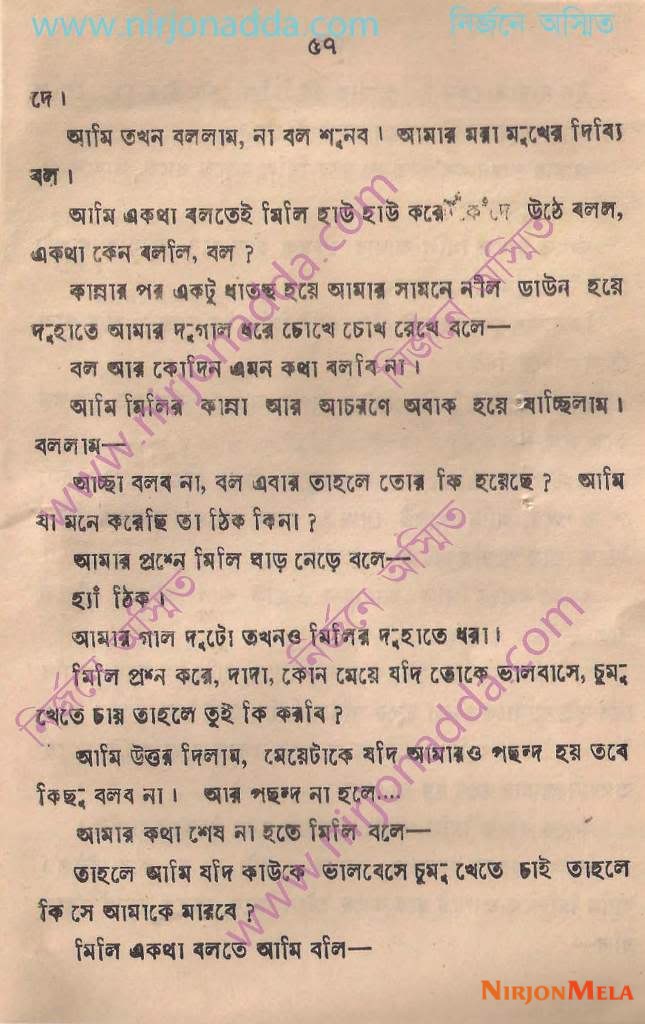 www.nirjonadda.com নির্জনে অস্মিত
৫৭
দে।
আমি তখন বললাম, না বল শুনব। আমার মরা মুখের দিব্যি
বল।
আমি একথা বলতেই মিলি হাউ হাউ করে কেঁদে উঠে বলল,
একথা কেন বললি, বল ?
কান্নার পর একটু ধাতস্থ হয়ে আমার সামনে নীল ডাউন হয়ে
দুহাতে আমার দুগাল ধরে চোখে চোখ রেখে বলে—
বল আর কোদিন এমন কথা বলবি না।
আমি মিলির কান্না আর আচরণে অবাক হয়ে যাচ্ছিলাম।
বললাম—
আচ্ছা বলব না, বল এবার তাহলে তোর কি হয়েছে ? আমি
যা মনে করেছি তা ঠিক কিনা ?
আমার প্রশ্নে মিলি ঘাড় নেড়ে বলে—
হ্যাঁ ঠিক।
আমার গাল দুটো তখনও মিলির দুহাতে ধরা।
মিলি প্রশ্ন করে, দাদা, কোন মেয়ে যদি তোকে ভালবাসে, চুমু
খেতে চায় তাহলে তুই কি করবি ?
আমি উত্তর দিলাম, মেয়েটাকে যদি আমারও পছন্দ হয় তবে
কিছু বলব না। আর পছন্দ না হলে....
আমার কথা শেষ না হতে মিলি বলে—
তাহলে আমি যদি কাউকে ভালবেসে চুমু খেতে চাই তাহলে
কি সে আমাকে মারবে ?
মিলি একথা বলতে আমি বলি—
www.nirjonadda.com
নির্জনে অস্মিত
নির্জনে অস্মিত
নির্জনে অস্মিত
www.nirjonadda.com
NIRJONMELA